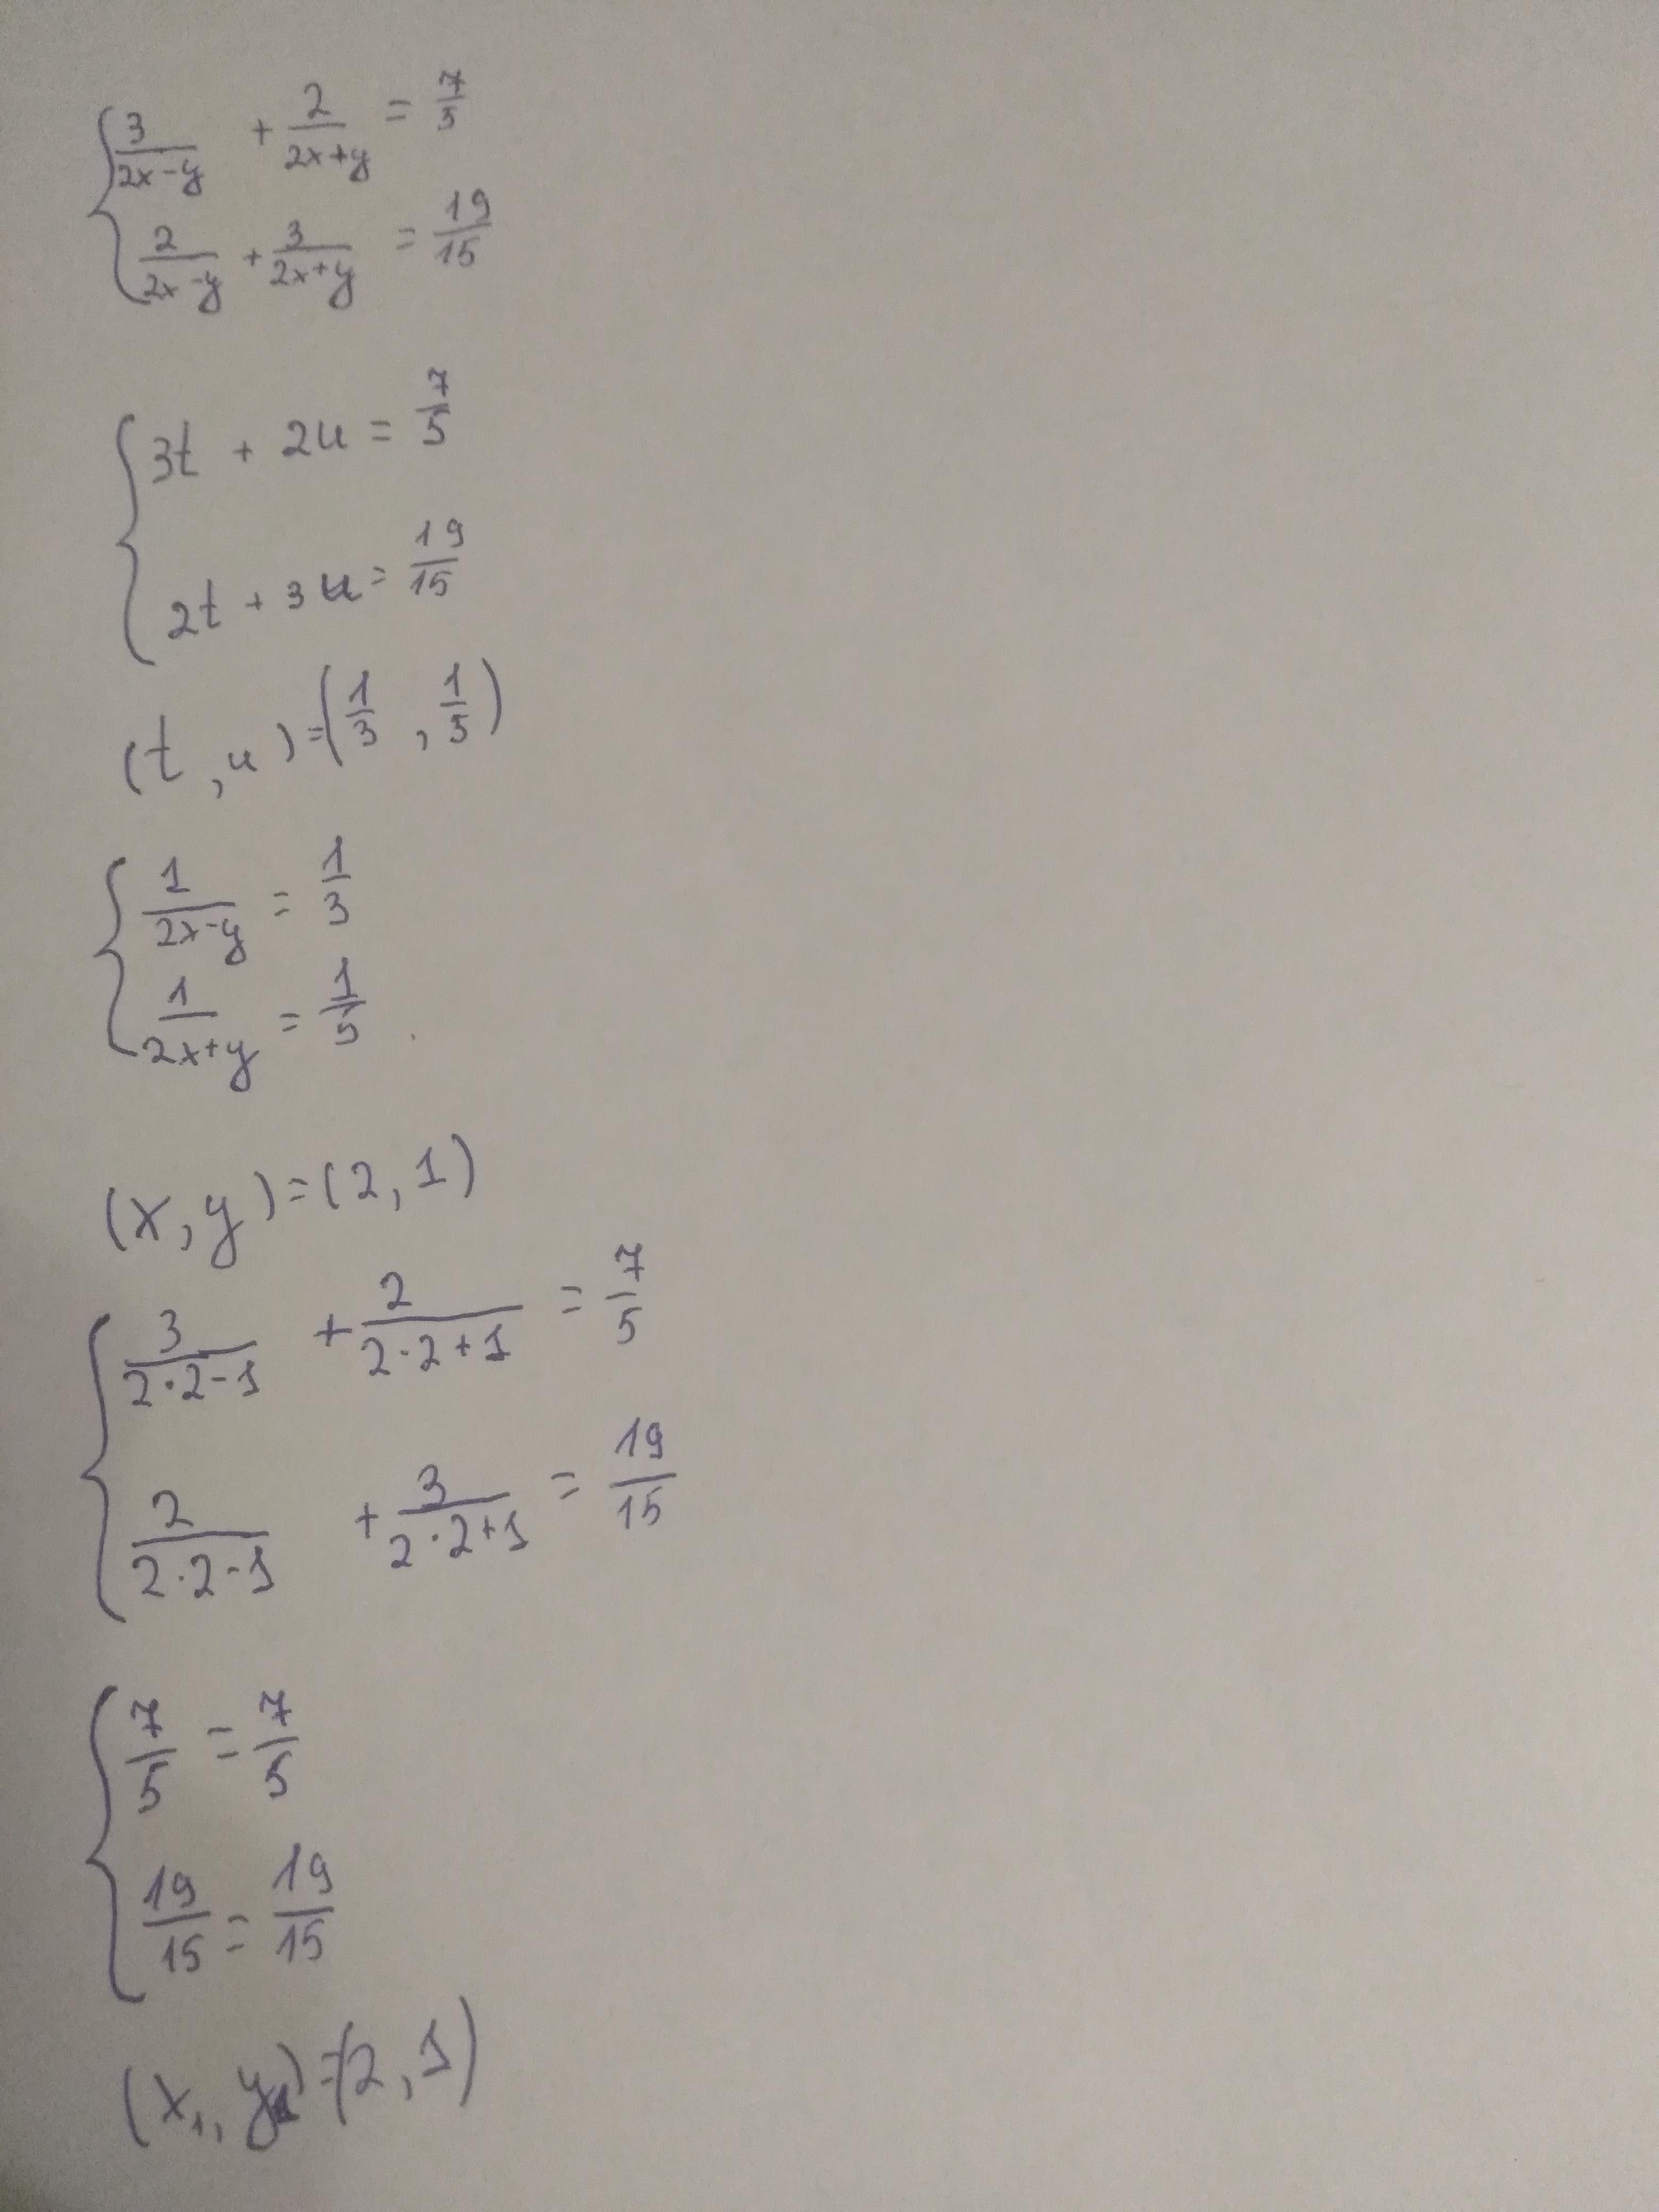 { 3/(2x-y) + 2/(2x+y) = 7/5
2/(2x-y) + 3/(2x+y) = 19/15
{ 3t + 2u = 7/5
2t + 3u = 19/15
(t, u) = (1/3, 1/5)
{ 1/(2x-y) = 1/3
1/(2x+y) = 1/5
(x, y) = (2, 1)
{ 3/(2·2-1) + 2/(2·2+1) = 7/5
2/(2·2-1) + 3/(2·2+1) = 19/15
{ 7/5 = 7/5
19/15 = 19/15
(x₁, y₁) = (2, 1)